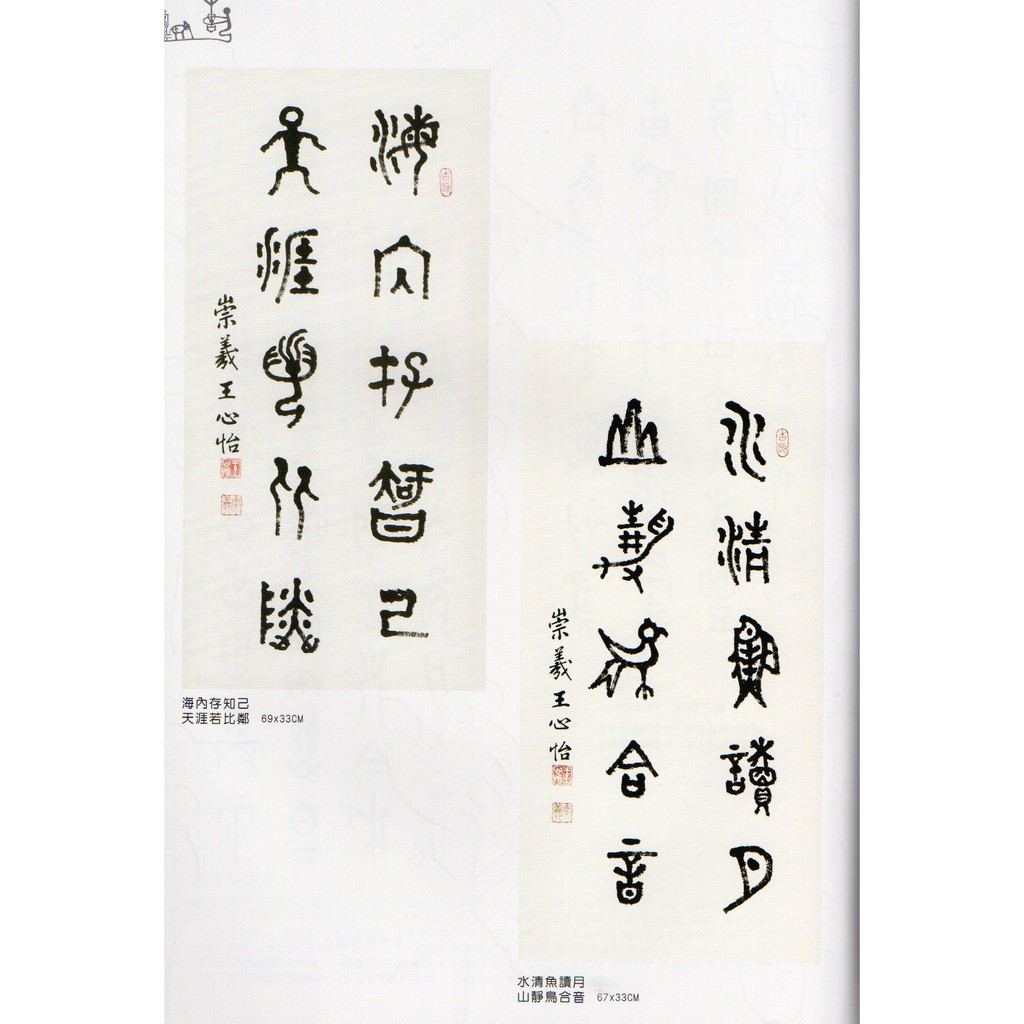 海內存知己
天涯若比鄰
崇羲王心怡
海內存知己
天涯若比鄰 69x33CM
水清魚讀月
山靜鳥合音
崇羲王心怡
水清魚讀月
山靜鳥合音 67x33CM